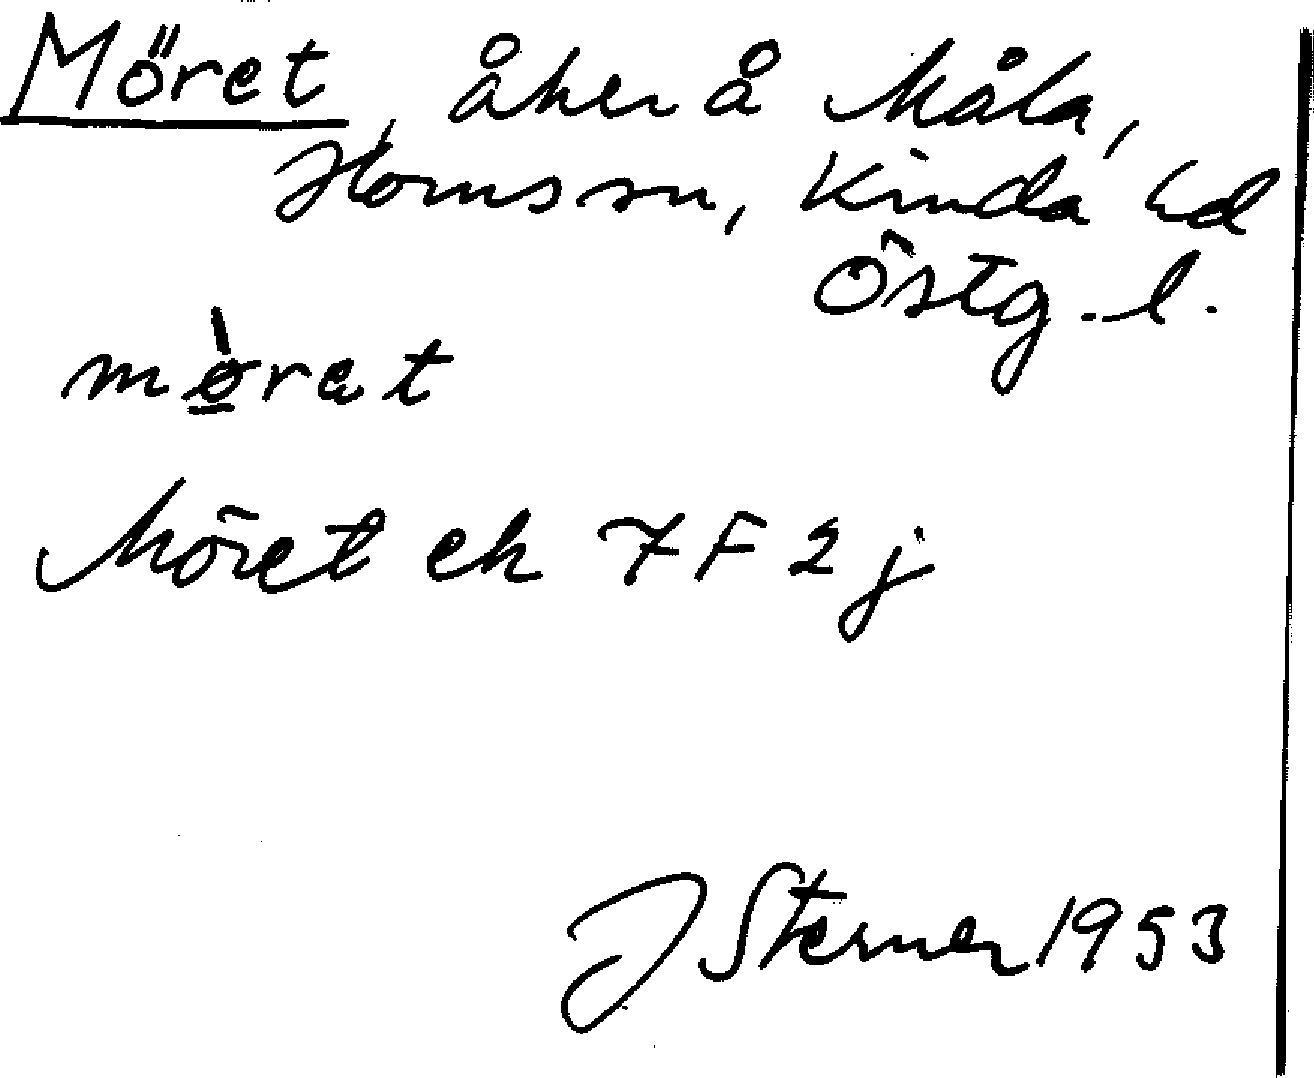 Möret, åker å Måla,
Hornssn, Kinda hd
Östg.l.
mø̠̀rət
Möret ek 7F2j
J Sterner 1953